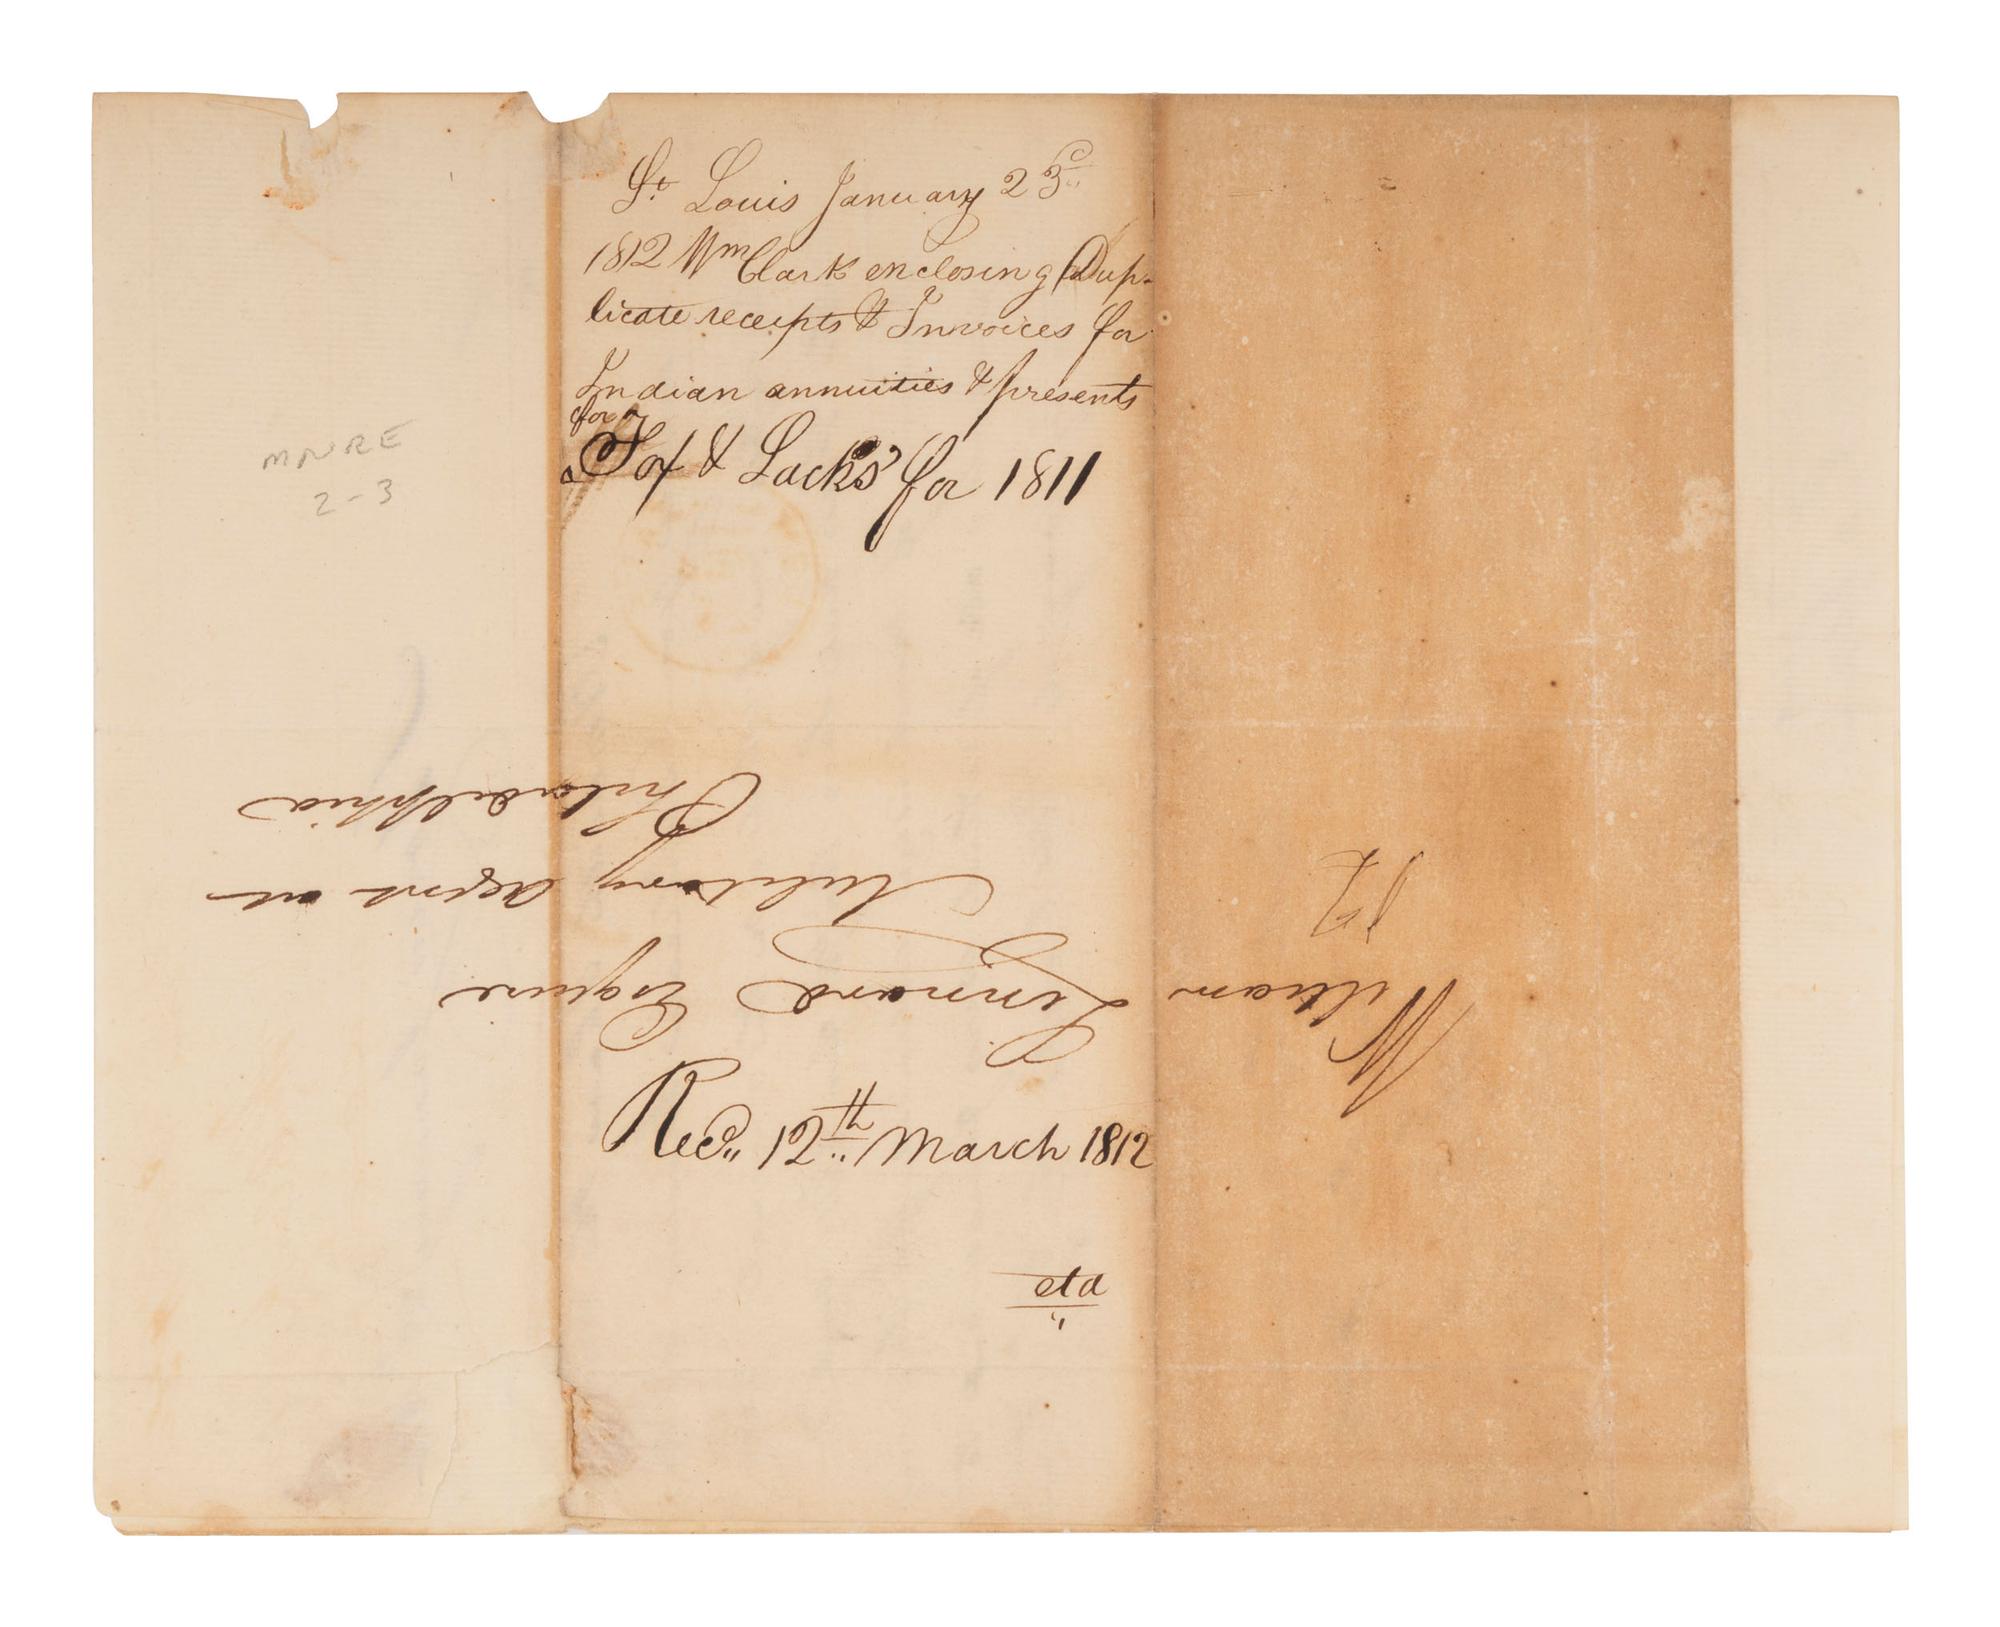 St Louis January 23d
1812 Wm Clark enclosing Dup-
licate receipts & Invoices for
Indian annuities & presents
for
Fox & Sacks' for 1811
MNRE
2-3
William Linnard Esquire
Military agent at
Philadelphia
Recd 12th March 1812
etd